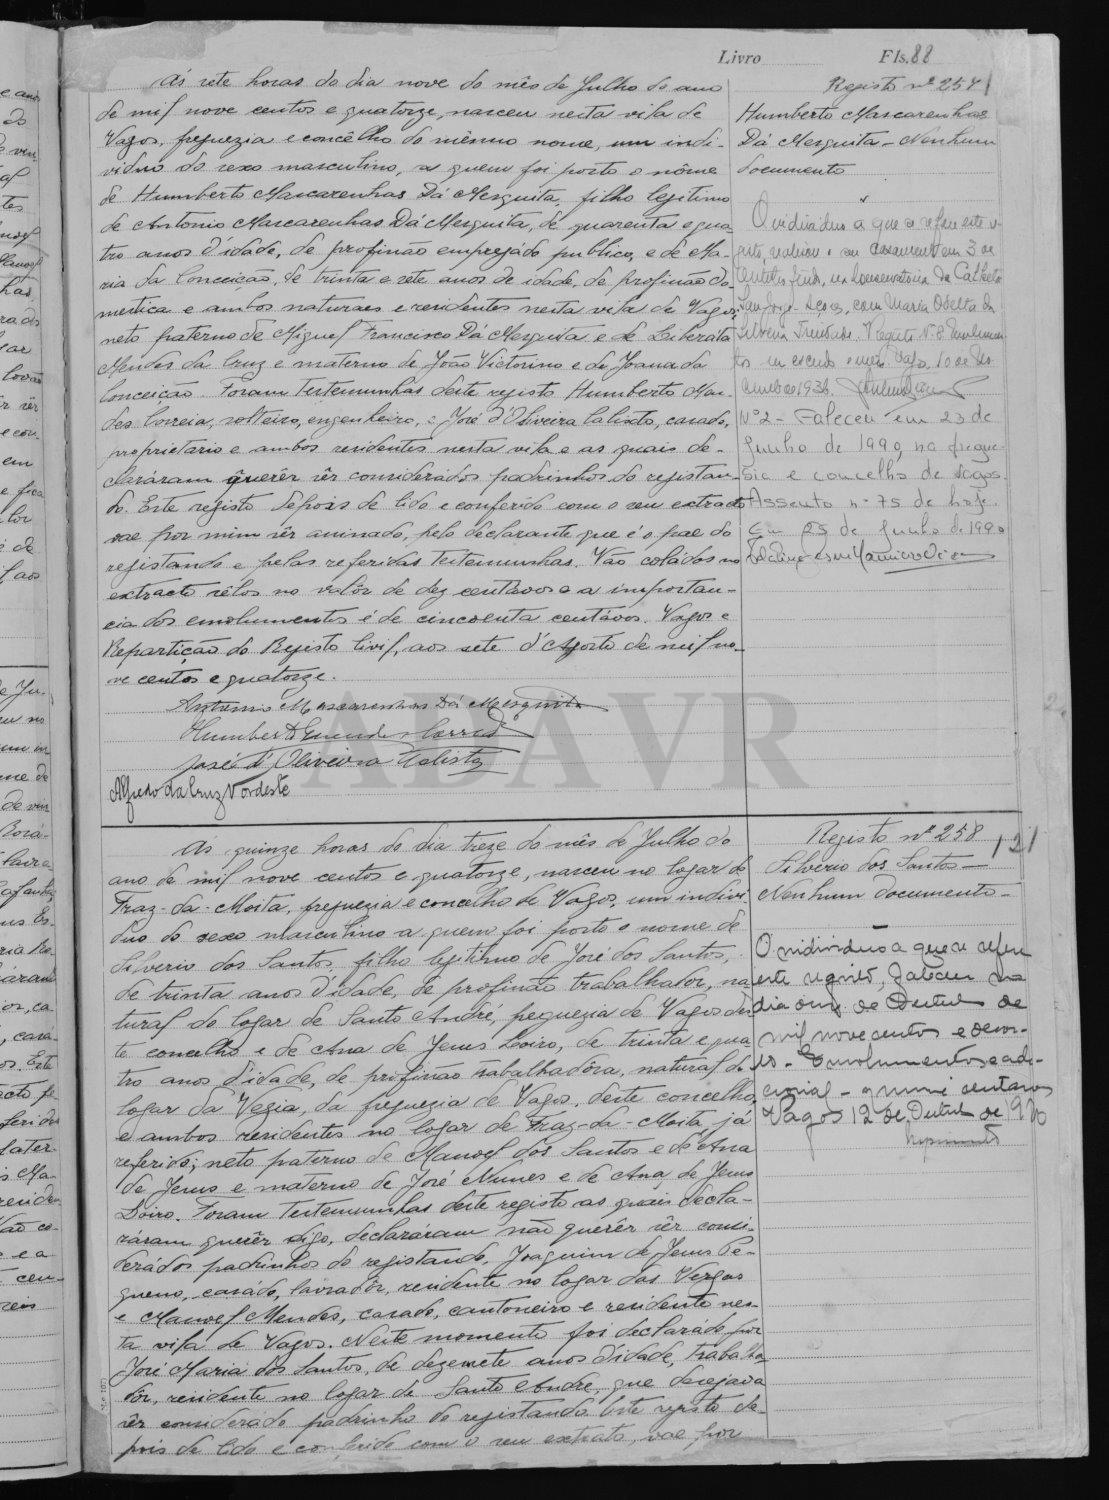 Livro Fls. 88
Ás sete horas do dia nove do mês de Julho do ano
de mil nove centos e quatorze, nasceu nesta vila de
Vagos, freguezia e concêlho do mêsmo nome, um indi-
viduo do sexo masculino, a quem foi posto o nôme
de Humberto Mascarenhas Dá Mesquita, filho legitimo
de Antonio Mascarenhas Dá Mesquita, de quarenta e qua
tro anos d'idade, de profissão empregádo publico, e de Ma-
ria da Conceição, de trinta e sete anos de idade, de profissão do-
mestica e ambos naturaes e residentes nesta vila de Vagos;
neto paterno de Miguel Francisco Dá Mesquita e de Liberata
Mendes da Cruz e materno de João Victorino e de Joana da
Conceição. Foram testemunhas deste registo Humberto Men-
des Correia, solteiro, engenheiro, e José d'Oliveira Calisto, casado,
proprietario e ambos residentes nesta vila e as quais de-
claráram querêr sêr considerados padrinhos do registan-
do. Este registo depois de lido e conferido com o seu extracto
vae por mim sêr assinado, pelo declarante que é o pae do
registando e pelas referidas testemunhas. Vão coládos no
extracto sêlos no valôr de dez centávos e a importan-
cia dos emolumentos é de cincoenta centávos. Vagos e
Repartição do Registo Civil, aos sete d'Agosto de mil no-
ve centos e quatorze.
Antonio Mascarenhas Dá Mesquita
Humberto Mendes Correia
José d'Oliveira Calisto
Alfredo da Cruz Nordeste
Registo nº 257
Humberto Mascarenhas
Dá Mesquita - Nenhum
documento
O individuo a que se refere este re-
gisto, realizou o seu casamento em 3 de
findo, na Conservatória da Calheta
São Jorge - Açores, com Maria Odelta da
Silveira Trindade.
Vagos, 10 de De-
zembro 1936.
Nº 2 - Faleceu em 23 de
Junho de 1990 na fregue-
sia e concelho de Vagos.
Assento nº 75 de hoje.
Em 25 de Junho de 1990
ADAVR
Ás quinze horas do dia treze do mês de Julho do
ano de mil nove centos e quatorze, nasceu no logar de
Fraz-da-Moita, freguezia e concelho de Vagos, um indivi-
duo do sexo masculino a quem foi posto o nome de
Silverio dos Santos, filho legitimo de José dos Santos,
de trinta anos d'idade, de profissão trabalhador, na-
tural do logar de Santo André, freguezia de Vagos des-
te concelho e de Ana de Jesus Loiro, de trinta e qua
tro anos d'idade, de profissão trabalhadôra, natural do
logar da Vegia, da freguezia de Vagos, deste concelho
e ambos residentes no logar de Fraz-da-Moita, já
referido; neto paterno de Manoel dos Santos e de Ana
de Jesus e materno de José Nunes e de Ana de Jesus
Loiro. Foram testemunhas deste registo as quais decla-
ráram querêr digo, declaráram não querêr sêr consi-
derádos padrinhos do registando, Joaquim de Jesus Pe-
queno, casádo, lavradôr, residente no logar das Vergas
e Manoel Mendes, casado, cantoneiro e residente nes-
ta vila de Vagos. Neste momento foi declarádo por
José Maria dos Santos, de dezesete anos d'idade, trabalha
dôr, residente no logar de Santo André, que desejava
sêr considerado padrinho do registando. Este registo de-
pois de lido e conferido com o seu extrato, vae por
Registo nº 258
121
Silverio dos Santos
Nenhum documento -
O individuo a que se refere
este registo, faleceu no
dia onze de Outubro de
mil novecentos e dezoi-
to. - Emolumentos e adi-
cional - quinze centavos
Vagos 12 de Outubro de 1920